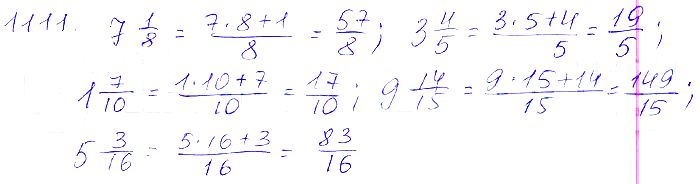 1111. 7 1/8 = (7·8+1)/8 = 57/8; 3 4/5 = (3·5+4)/5 = 19/5;
1 7/10 = (1·10+7)/10 = 17/10; 9 14/15 = (9·15+14)/15 = 149/15;
5 3/16 = (5·16+3)/16 = 83/16